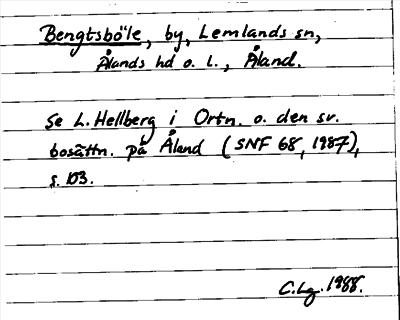 Bengtsböle, by, Lemlands sn,
Ålands hd o. l., Åland.
Se L. Hellberg i Ortn. o. den sv.
bosättn. på Åland (SNF 68, 1987),
s. 103.
C.Lg. 1988.